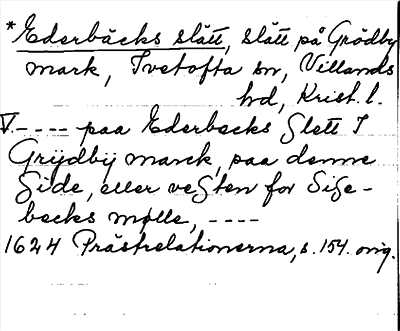 *Ederbäcks slätt, slätt på Grödby
mark, Ivetofta sn, Villands
hd, Krist. l.
V. ---- paa Ederbecks Slett I
Grÿdbÿ marck, paa denne
Side, eller veSten for SiSe-
becks mølle, ----
1624 Prästrelationerna, s. 154. orig.